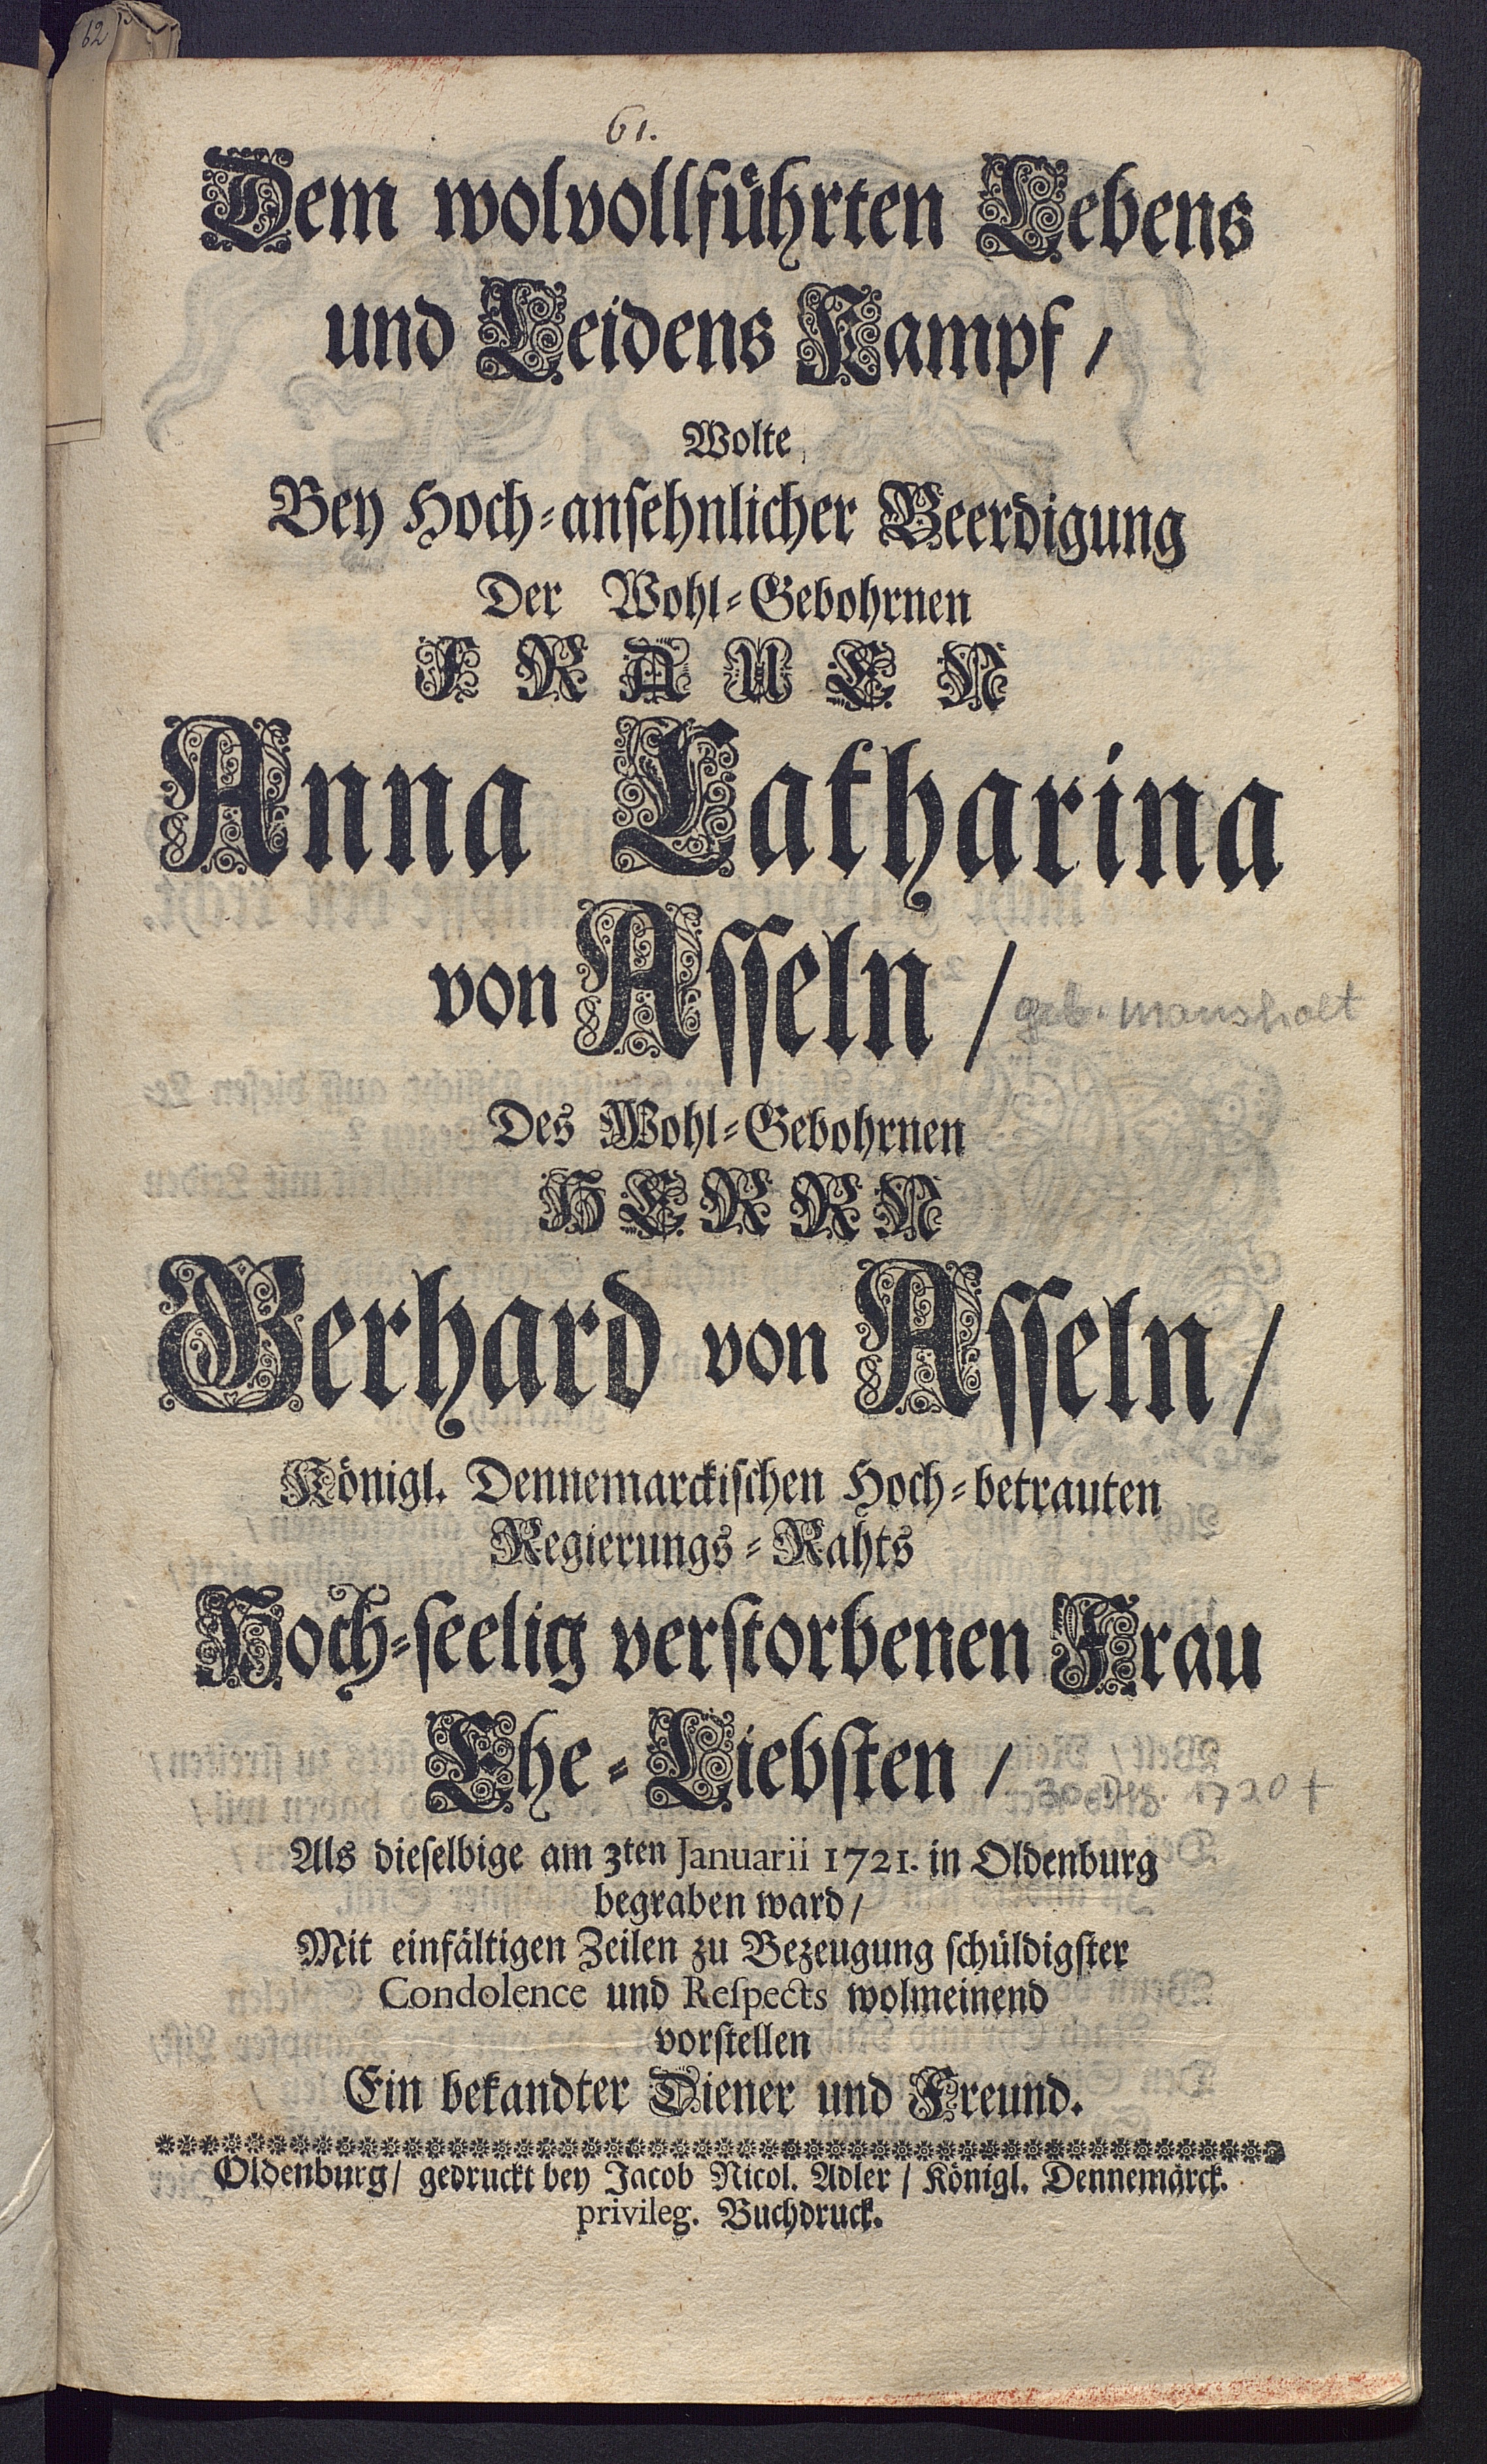 62
61.
Dem wolvollfuͤhrten Lebens
und Leidens Kampf /
Wolte
Bey Hoch-ansehnlicher Beerdigung
Der Wohl-Gebohrnen
FRAUEN
Anna Catharina
von Asseln /
geb. Mansholt
Des Wohl-Gebohrnen
HERRN
Gerhard von Asseln /
Königl. Dennemarckischen Hoch-betrauten
Regierungs-Rahts
Hoch-seelig verstorbenen Frau
Ehe-Liebsten /
1720 †
Als dieselbige am 3ten Januarii 1721. in Oldenburg
begraben ward /
Mit einfältigen Zeilen zu Bezeugung schüldigster
Condolence und Respects wolmeinend
vorstellen
Ein bekandter Diener und Freund.
Oldenburg / gedruckt bey Jacob Nicol. Adler / Königl. Dennemärck.
privileg. Buchdruck.